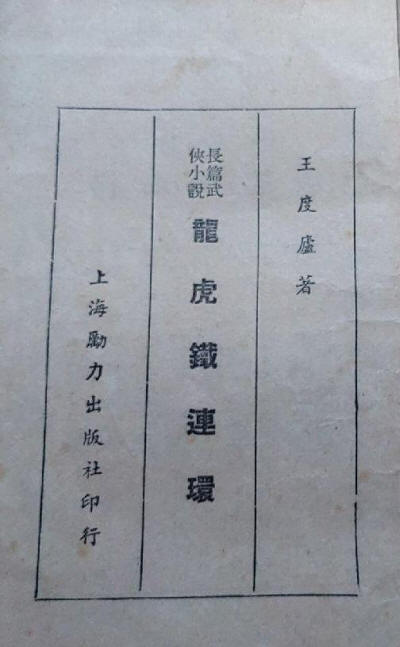 王度廬著
長篇武
俠小說
龍虎鐵連環
上海勵力出版社印行